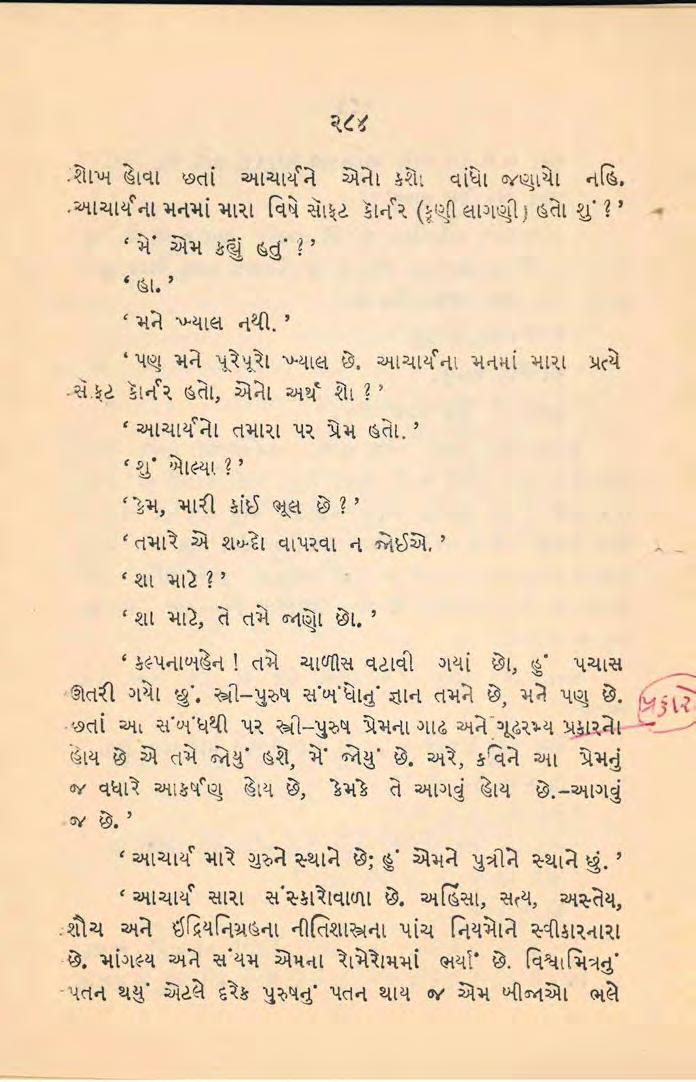 ૨૮૪
શોખ હોવા છતાં આચાર્યને એનો કશો વાંધો જણાયો નહિ.
આચાર્યના મનમાં મારા વિષે સૉફ્ટ કૉર્નર (કૂણી લાગણી) હતો શું ?’
‘ મેં એમ કહ્યું હતું ? ’
‘ હા. ’
‘ મને ખ્યાલ નથી. ’
‘ પણ મને પૂરેપૂરો ખ્યાલ છે. આચાર્યના મનમાં મારા પ્રત્યે
સૉફ્ટ કૉર્નર હતો, એનો અર્થ શો ? ’
‘ આચાર્યનો તમારા પર પ્રેમ હતો. ’
‘ શું બોલ્યા ? ’
‘ કેમ, મારી કાંઈ ભૂલ છે ? ’
‘ તમારે એ શબ્દો વાપરવા ન જોઈએ. ’
‘ શા માટે ? ’
‘ શા માટે, તે તમે જાણો છો. ’
‘ કલ્પનાબહેન ! તમે ચાળીસ વટાવી ગયાં છો, હું પચાસ
ઊતરી ગયો છું. સ્ત્રી–પુરુષ સંબંધોનું જ્ઞાન તમને છે, મને પણ છે.
છતાં આ સંબંધથી પર સ્ત્રી–પુરુષ પ્રેમના ગાઢ અને ગૂઢરમ્ય પ્રકારનો પ્રકારો
હોય છે એ તમે જોયું હશે, મેં જોયું છે. અરે, કવિને આ પ્રેમનું
જ વધારે આકર્ષણ હોય છે, કેમકે તે આગવું હોય છે.–આગવું
જ છે. ’
‘ આચાર્ય મારે ગુરુને સ્થાને છે; હું એમને પુત્રીને સ્થાને છું. ’
‘ આચાર્ય સારા સંસ્કારોવાળા છે. અહિંસા, સત્ય, અસ્તેય,
શૌચ અને ઇંદ્રિયનિગ્રહના નીતિશાસ્ત્રના પાંચ નિયમોને સ્વીકારનારા
છે. માંગલ્ય અને સંયમ એમના રોમેરોમમાં ભર્યાં છે. વિશ્વામિત્રનું
પતન થયું એટલે દરેક પુરુષનું પતન થાય જ એમ બીજાઓ ભલે